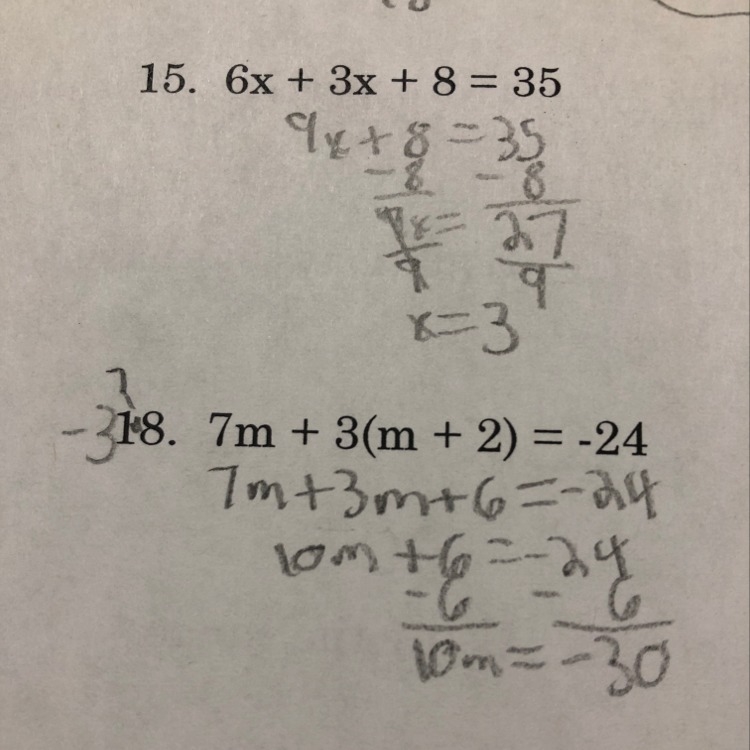 15. 6x + 3x + 8 = 35
9x + 8 = 35
- 8 - 8
9x = 27
9 9
x = 3
18. 7m + 3(m + 2) = -24
7m + 3m + 6 = -24
10m + 6 = -24
- 6 - 6
10m = -30